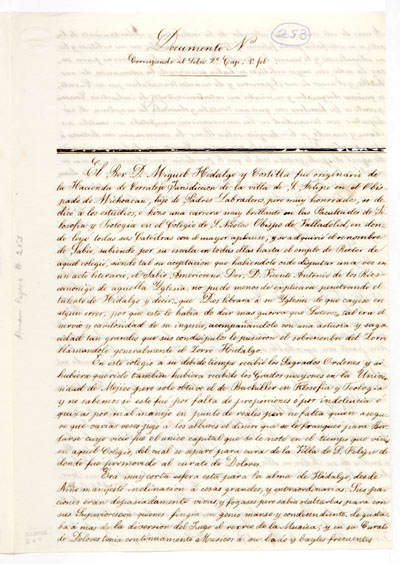 253
Documento Nº
Correspondo al Libro 2º Cap. 5º fol
El Bor D. Miguel Hidalgo y Costilla fue originario de
la Hacienda de Corralejo Jurisdiccion de la villa de S. Felipe en el Obis
pado de Michoacan, hijo de Padres Labradores, pero muy honrrados, se de
dico a los estudios, e hizo una carrera muy brillante en las Facultades de Fi
losofia y Teologia en el Colegio de S. Nicolas Obispo de Valladolid, en don
de leyo todas las Catedras con mayor aplauso, y se adquirio el renombre
de Sabio, subiendo por su escala a todas ellas hasta el empleo de Rector de
aquel colegio, siendo tal su aceptacion que habiendole oido disputar una vez en
un acto literario, el Sabio Americano Dor. D. Vicente Antonio de los Rios
canonigo de aquella Yglesia, no pudo menos de explicarse penetrando el
talento de Hidalgo y decir, que Dios librara á su Yglesia de que cayese en
algun error, por que este le habia de dar mas guerra que Lutero, tal era el
nervio y cavilosidad de su ingenio, acompañandolo con una astucia y saga
cidad tan grandes que sus condiscipulos le pusieron el sobrenombre del Zorro
llamandole generalmente el Zorro Hidalgo.
En este colegio a su debido tiempo recibió los Sagrados Ordenes y si
hubiera querido tambien hubiera recibido los Grados mayores en la Univer
sidad de Mejico pero solo obtuvo el de Bachiller en Filosofia y Teologia
y no sabemos si esto fue por falta de proporciones ó por indolencia ó
quizas por mal manejo en punto de reales pero no falta quien asegu
re que varias veces jugo a los albures el dinero que se le franqueo para Bor
larse cuyo vicio fue el unico capital que se le noto en el tiempo que vivio
en aquel Colegio, del cual se separo para cura de la Villa de S. Felipe de
donde fue promovido al curato de Dolores.
Era muy corta esfera esta para la alma de Hidalgo, desde
Niño manifesto inclinacion á cosas grandes, y extraordinarias. Sus pa
ciones eran desgraciadamente vivas, y fogosas pero sabia ocultarlas para con
sus Superiores con quienes fingia un genio manso y condescendiente. Le gusta
ba a mas de la diversion del Juego el recreo de la Musica; y en su Curato
de Dolores tenia continuamente Musicos á su lado y bayles frecuentes